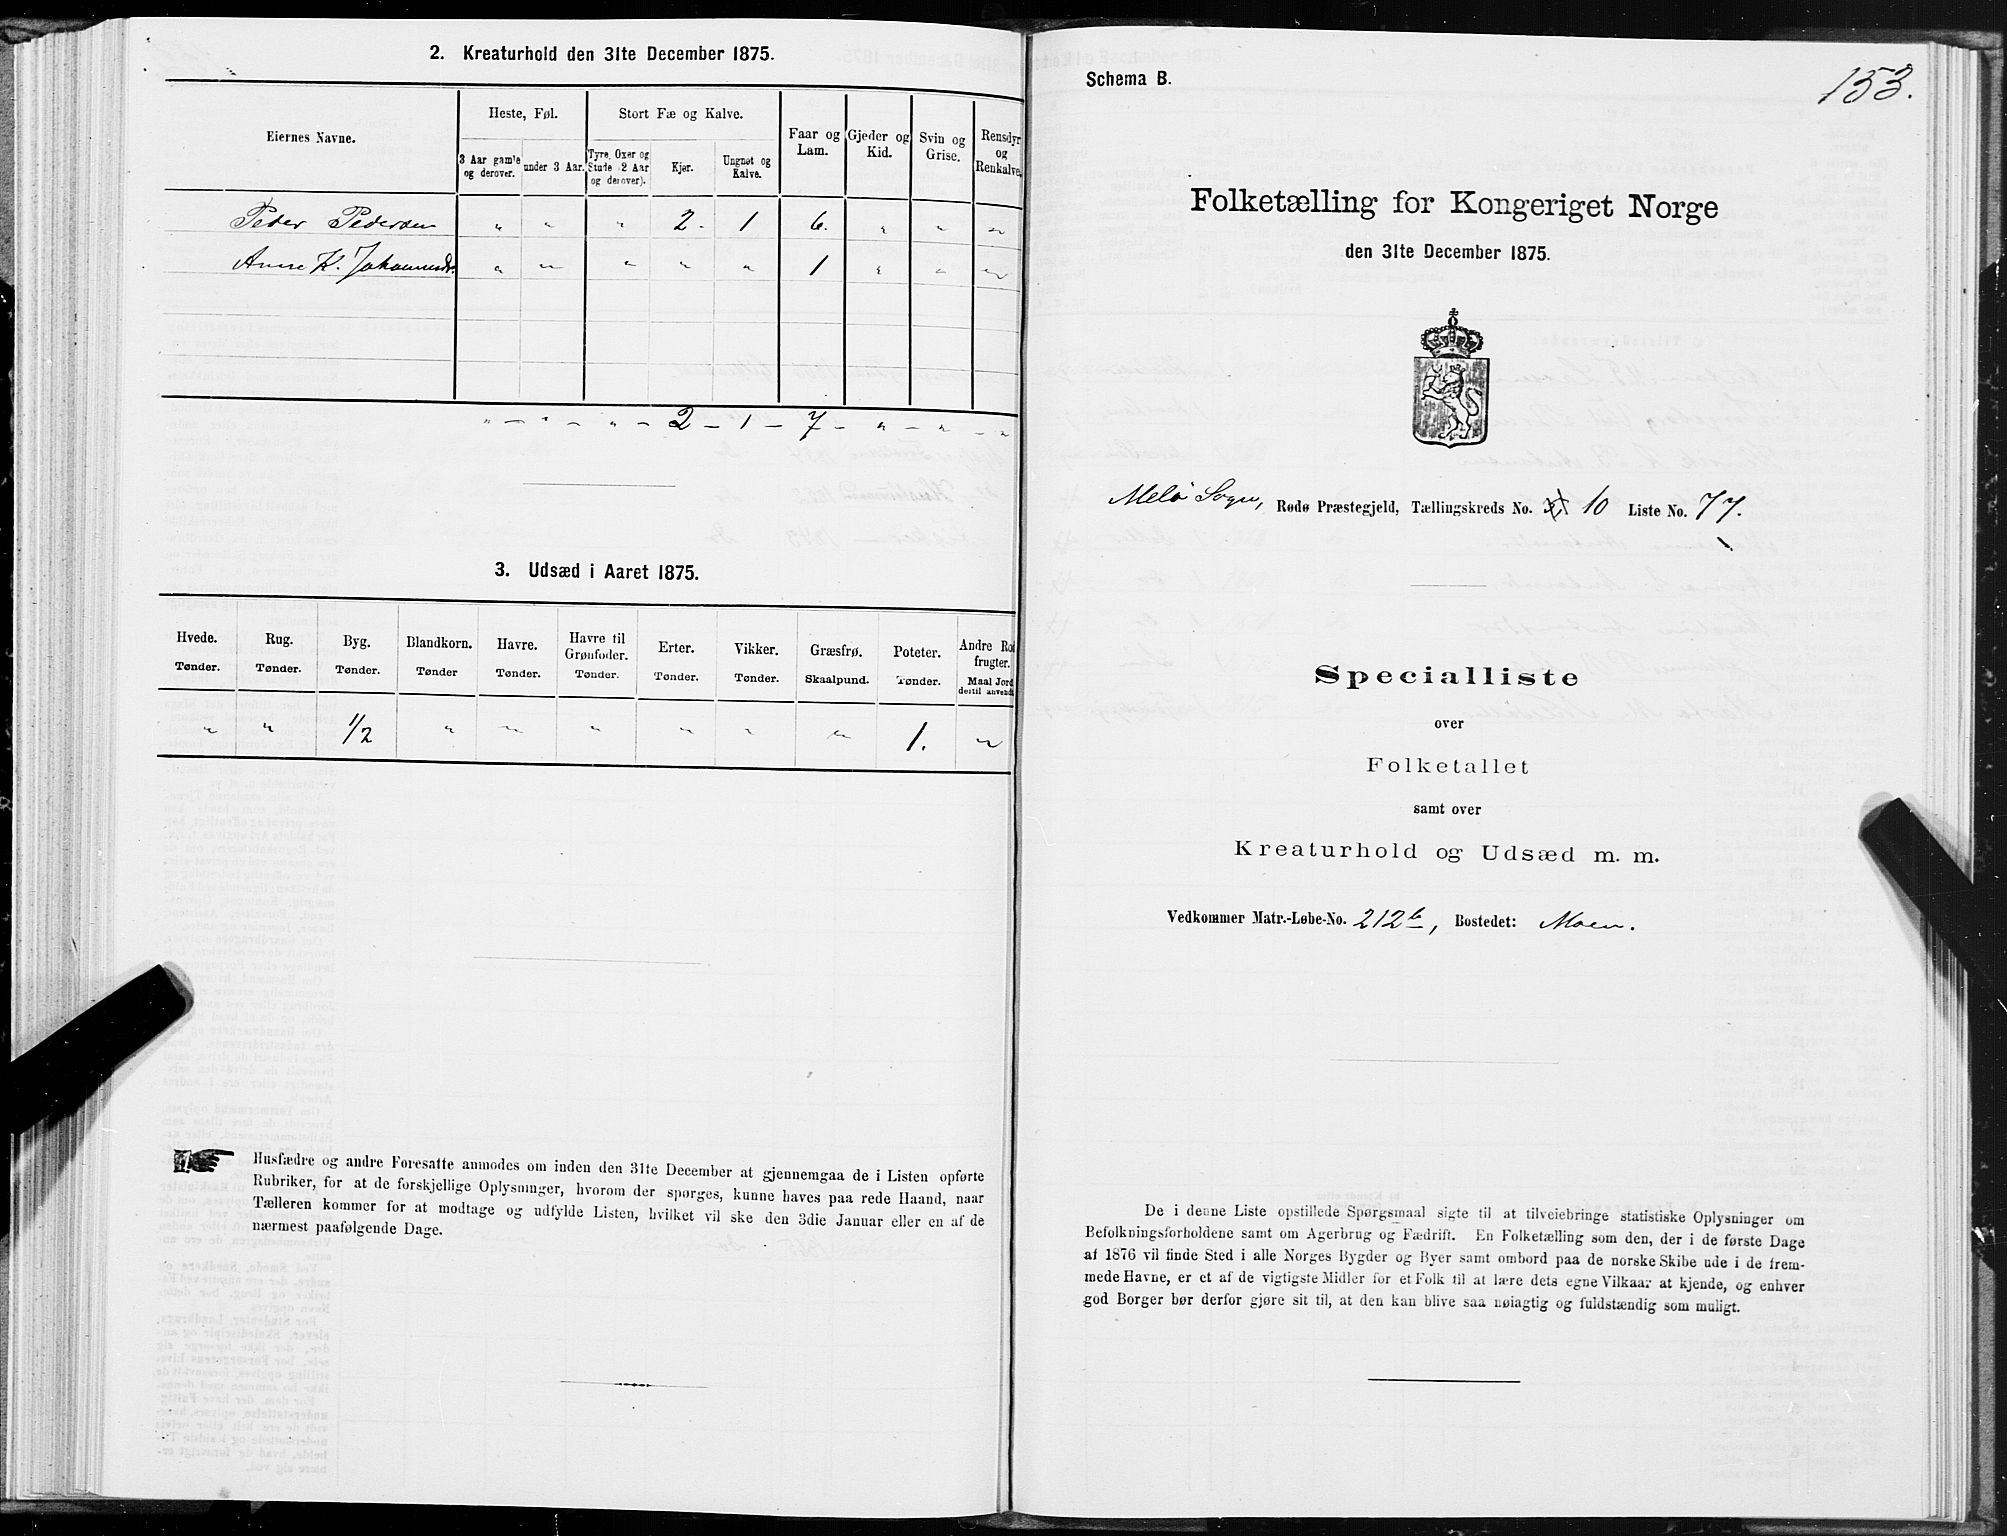 2. Kreaturhold den 31te December 1875.
Eiernes Navne.
Heste, Føl.
Stort Fæ og Kalve.
Faar og Lam.
Gjeder og Kid.
Svin og Grise.
Rensdyr og Renkalve.
3 Aar gamle og derover.
under 3 Aar.
Tyre, Oxer og Stude (2 Aar og derover).
Kjør.
Ungnøt og Kalve.
Peder Pedersen " " " 2. 1 6. " " "
Anne K. Johannesdr. " " " " " 1 " " "
" - " - " - 2 - 1 - 7 - " - " - "
3. Udsæd i Aaret 1875.
Hvede. Rug. Byg. Blandkorn. Havre. Havre til Grønfoder. Erter. Vikker. Græsfrø. Poteter. Andre Rodfrugter.
Tønder. Tønder. Tønder. Tønder Tønder. Tønder. Tønder. Tønder. Skaalpund. Tønder. Maal Jord dertil anvendt
" " 1/2 " " " " " " 1. "
Husfædre og andre Foresatte anmodes om inden den 31te December at gjennemgaa de i Listen opførte
Rubriker, for at de forskjellige Oplysninger, hvorom der spørges, kunne haves paa rede Haand, naar
Tælleren kommer for at modtage og udfylde Listen, hvilket vil ske den 3die Januar eller en af de
nærmest paafølgende Dage.
Schema B.
153.
Folketælling for Kongeriget Norge
den 31te December 1875.
Melö Sogn, Rødø Præstegjeld, Tællingskreds No. 10 Liste No. 77.
Specialliste
over
Folketallet
samt over
Kreaturhold og Udsæd m. m.
Vedkommer Matr.-Løbe-No. 212b, Bostedet: Moen.
De i denne Liste opstillede Spørgsmaal sigte til at tilveiebringe statistiske Oplysninger om
Befolkningsforholdene samt om Agerbrug og Fædrift. En Folketælling som den, der i de første Dage
af 1876 vil finde Sted i alle Norges Bygder og Byer samt ombord paa de norske Skibe ude i de frem-
mede Havne, er et af de vigtigste Midler for et Folk til at lære dets egne Vilkaar at kjende, og enhver
god Borger bør derfor gjøre sit til, at den kan blive saa nøiagtig og fuldstændig som muligt.